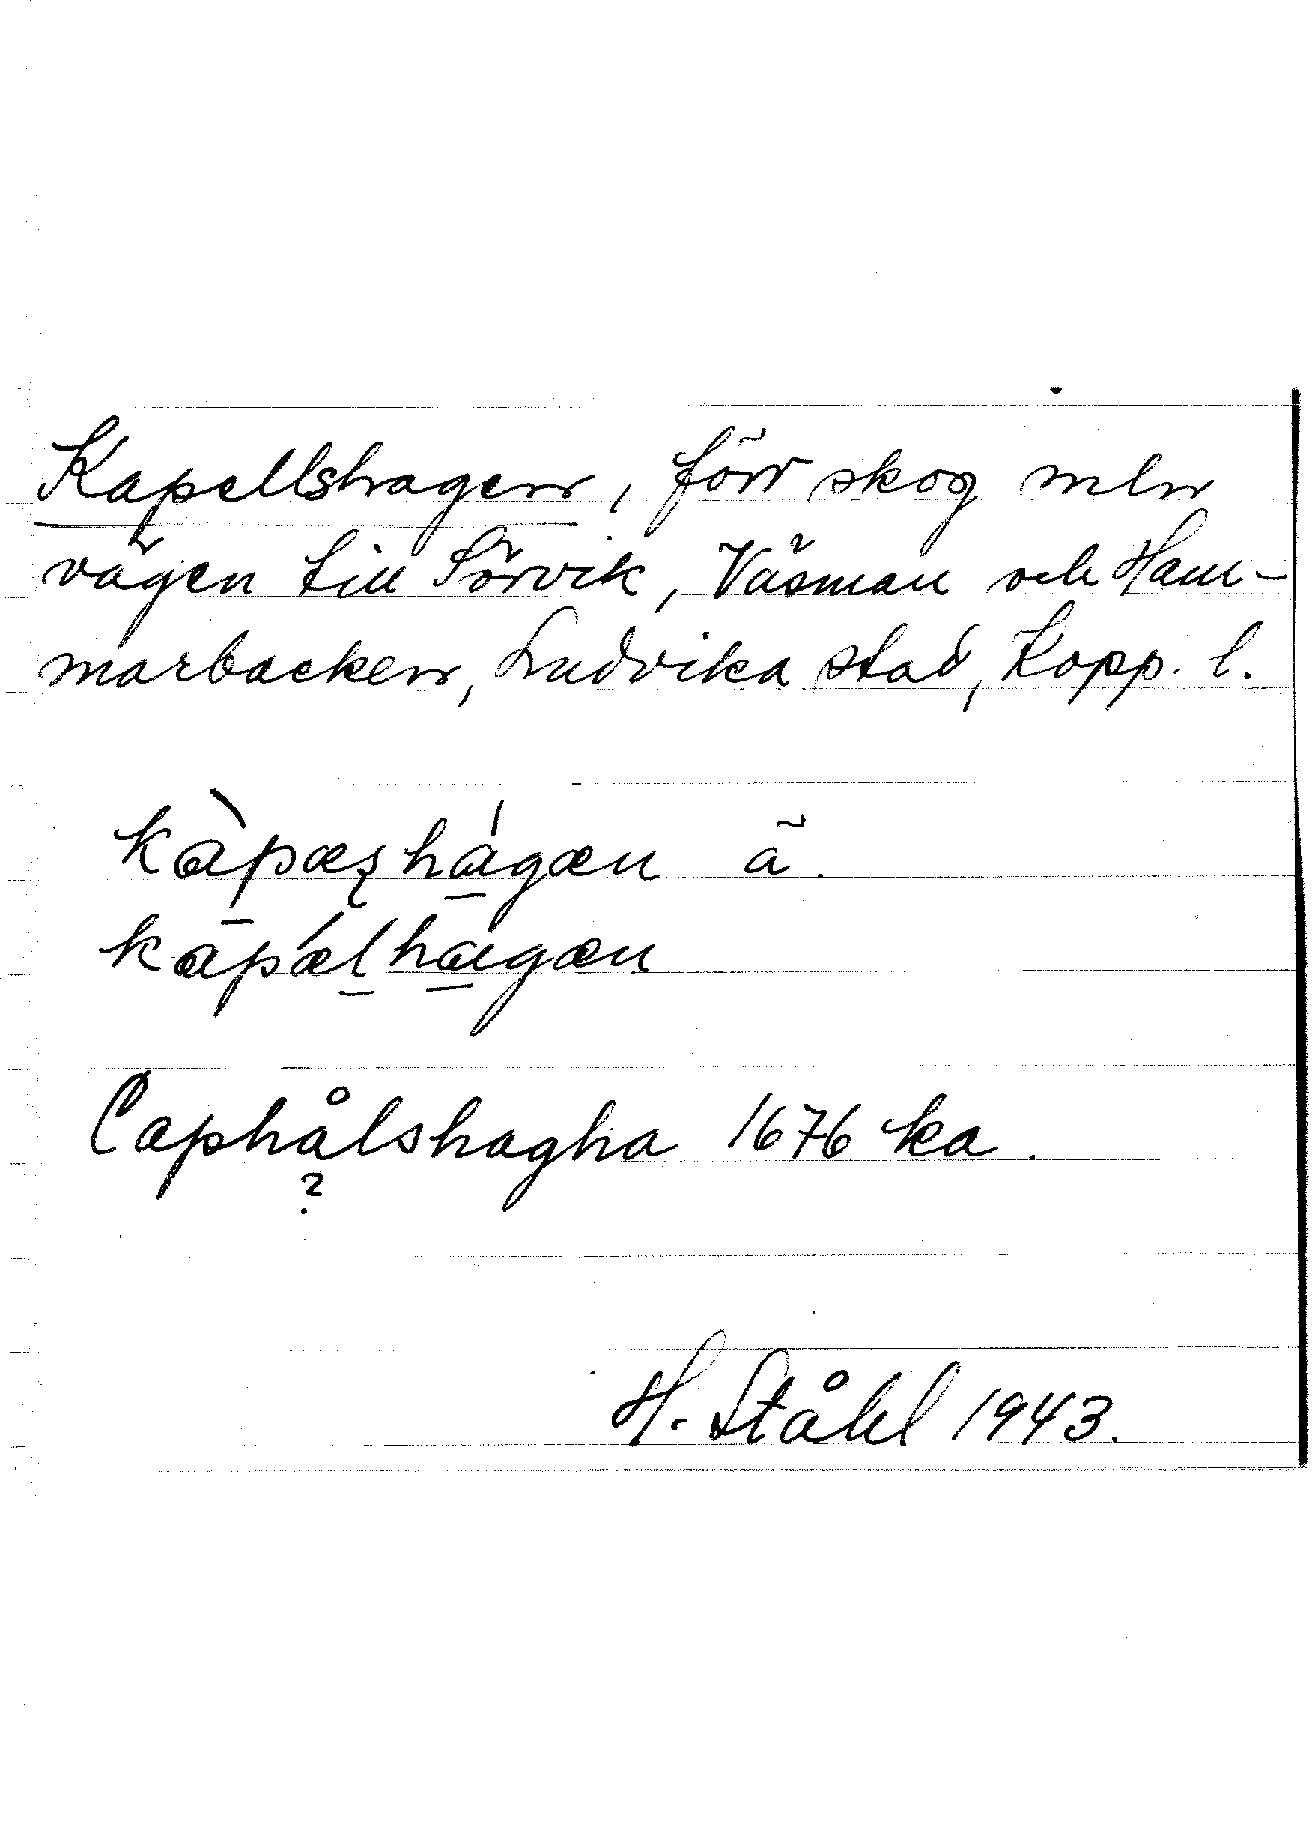 Kapellshagen, förr skog mln
vägen till Sörvik, Väsman och Ham-
marbacken, Ludvika stad, Kopp. l.
kàpæʂhágæn ä.
kapǽlhagæn
Caphålshagha 1676 ka.
?
H. Ståhl 1943.